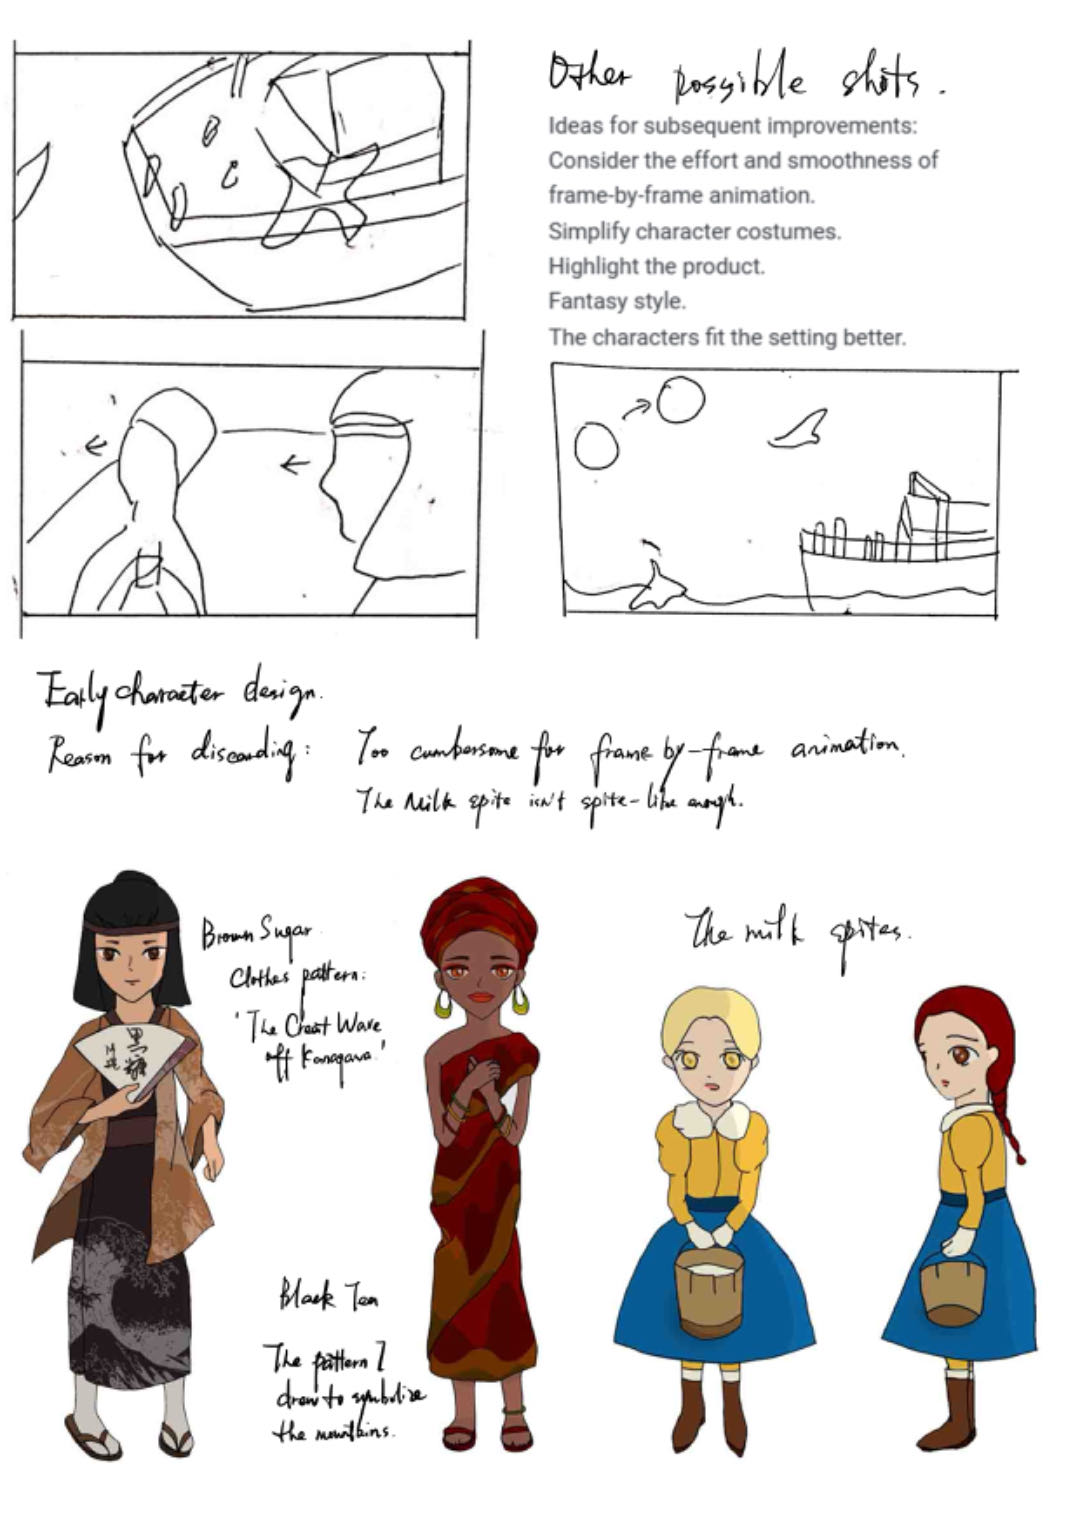 Other possible shots.
Ideas for subsequent improvements:
Consider the effort and smoothness of
frame-by-frame animation.
Simplify character costumes.
Highlight the product.
Fantasy style.
The characters fit the setting better.
Early character design.
Reason for discarding: Too cumbersome for frame by-frame animation.
The Milk spite isn't spite-like enough.
Brown Sugar
Clothes pattern:
'The Great Wave
off Kanagawa.'
黑糖
The milk spites.
Black Tea
The pattern I
draw to symbolize
the mountains.